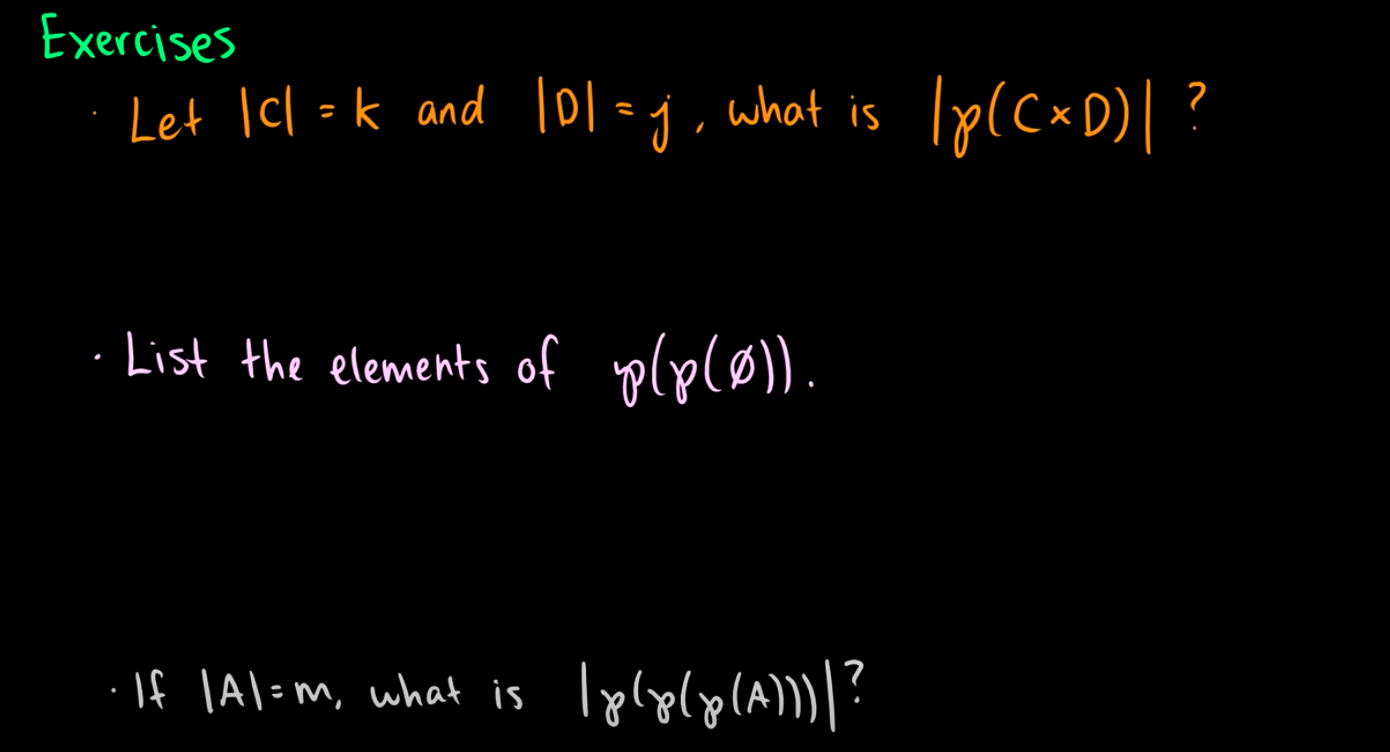 Exercises
· Let |C| = k and |D| = j, what is |℘(C×D)| ?
· List the elements of ℘(℘(∅)).
· If |A| = m, what is |℘(℘(℘(A)))| ?